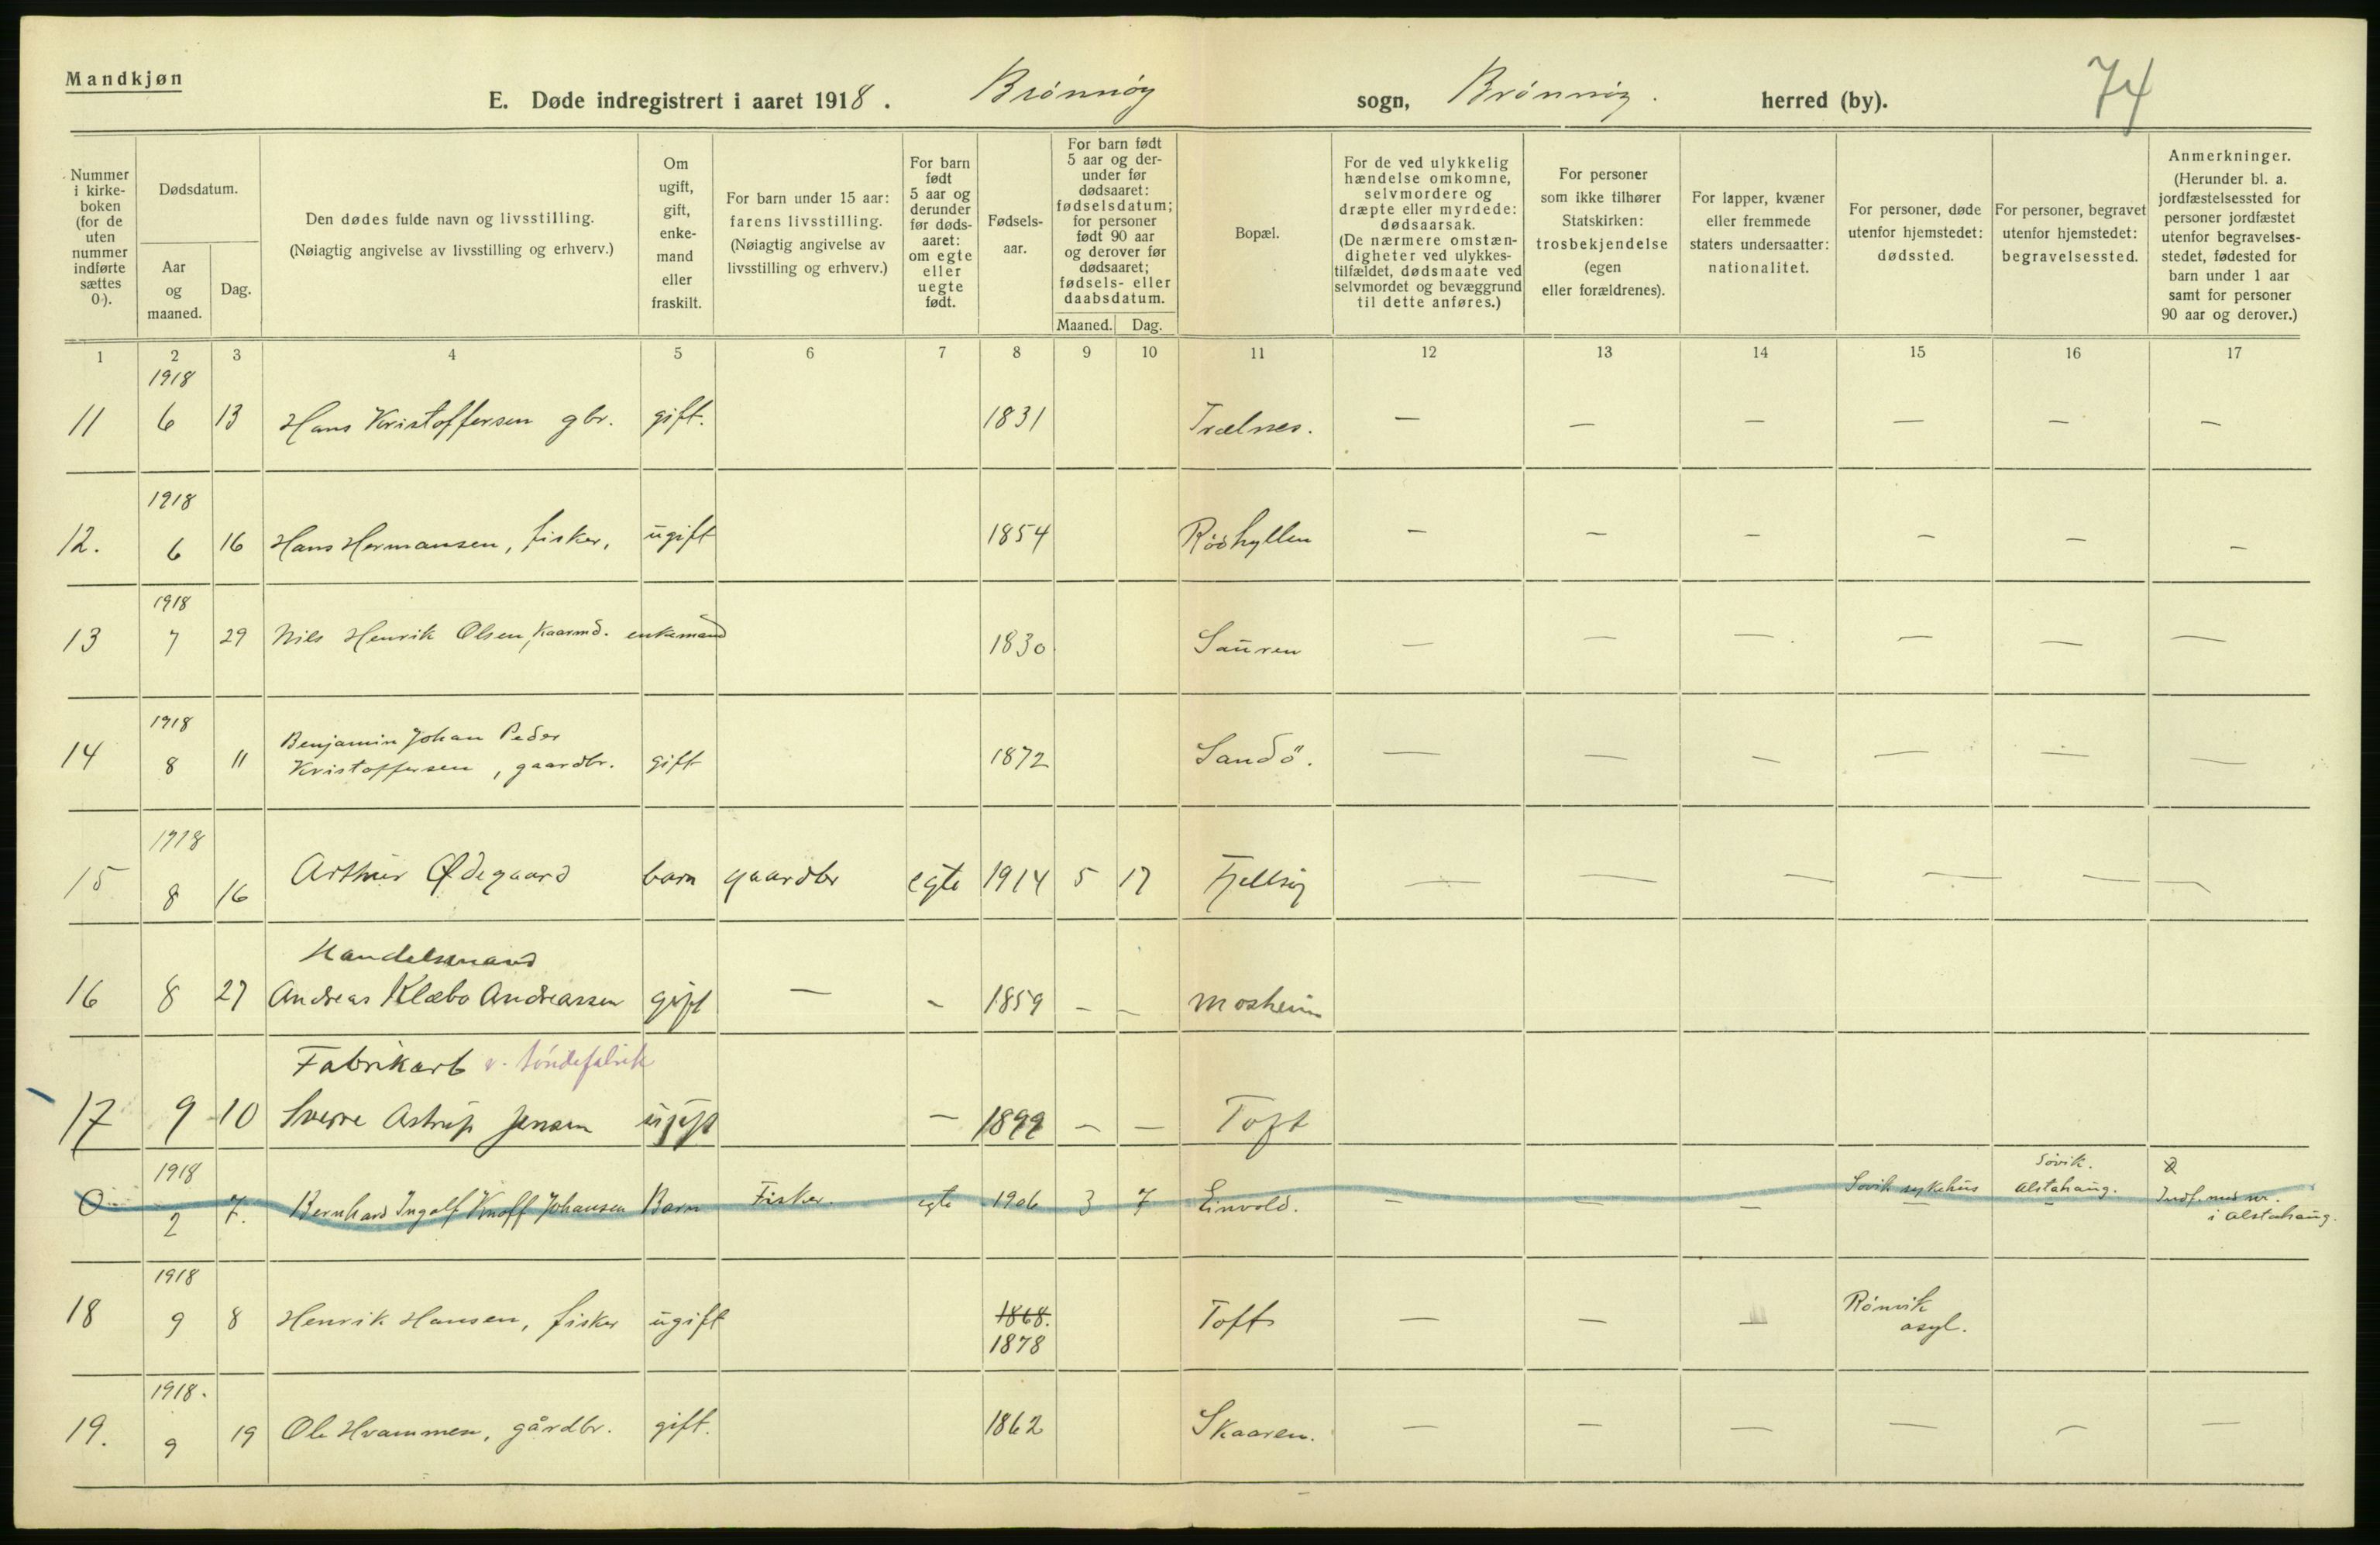 Mandkjøn
E. Døde indregistrert i aaret 1918. Brönnöy sogn, Brönnöy. herred (by). 74
Nummer i kirke-boken (for de uten nummer indførte sættes 0).
Dødsdatum.
Aar og maaned.
Dag.
Den dødes fulde navn og livsstilling.
(Nøiagtig angivelse av livsstilling og erhverv.)
Om ugift, gift, enke-mand eller fraskilt.
For barn under 15 aar: farens livsstilling. (Nøiagtig angivelse av livsstilling og erhverv.)
For barn født 5 aar og derunder før døds-aaret: om egte eller uegte født.
Fødsels-aar.
For barn født 5 aar og der-under før dødsaaret: fødselsdatum; for personer født 90 aar og derover før dødsaaret; fødsels- eller daabsdatum.
Maaned. Dag.
Bopæl.
For de ved ulykkelig hændelse omkomne, selvmordere og dræpte eller myrdede: dødsaarsak. (De nærmere omstæn-digheter ved ulykkes-tilfældet, dødsmaate ved selvmordet og bevæggrund til dette anføres.)
For personer som ikke tilhører Statskirken: trosbekjendelse (egen eller forældrenes).
For lapper, kvæner eller fremmede staters undersaatter: nationalitet.
For personer, døde utenfor hjemstedet: dødssted.
For personer, begravet utenfor hjemstedet: begravelsessted.
Anmerkninger. (Herunder bl. a. jordfæstelsessted for personer jordfæstet utenfor begravelses-stedet, fødested for barn under 1 aar samt for personer 90 aar og derover.)
1 2 3 4 5 6 7 8 9 10 11 12 13 14 15 16 17
1918
11 6 13 Hans Kristoffersen gbr. gift. 1831 Trælnes. — — — — — —
1918
12. 6 16 Hans Hermansen, fisker, ugift 1854 Röshyllen — — — — — —
1918
13 7 29 Nils Henrik Olsen, kaarmd. enkemand 1830 Sauren — — — — — —
1918
14 8 11 Benjamin Johan Peder
Kristoffersen, gaardbr. gift 1872 Sandö. — — — — — —
1918
15 8 16 Arthur Ødegaard barn gaardbr egte 1914 5 17 Fjellsöy — — — — — —
Handelsmand
16 8 27 Andreas Klæbo Andreassen gift — - 1859 - - Mosheim
Fabrikarb v. töndefabrik
17 9 10 Sverre Astrup Jensen ugift — 1899 — — Toft
1918
0 2 7. Bernhard Ingolf Knoff Johansen Barn Fisker. egte 1906 3 7 Einvold. — — — Sövik sykehus — Sövik. Alstahaug. — Indf. med nr. 2
i Alstahaug.
1918
18 9 8 Henrik Hansen, fisker ugift 1868. Toft — — — Rönvik
1878 asyl.
1918.
19. 9 19 Ole Hvammen, gårdbr. gift. 1862 Skaaren. — — — — — —